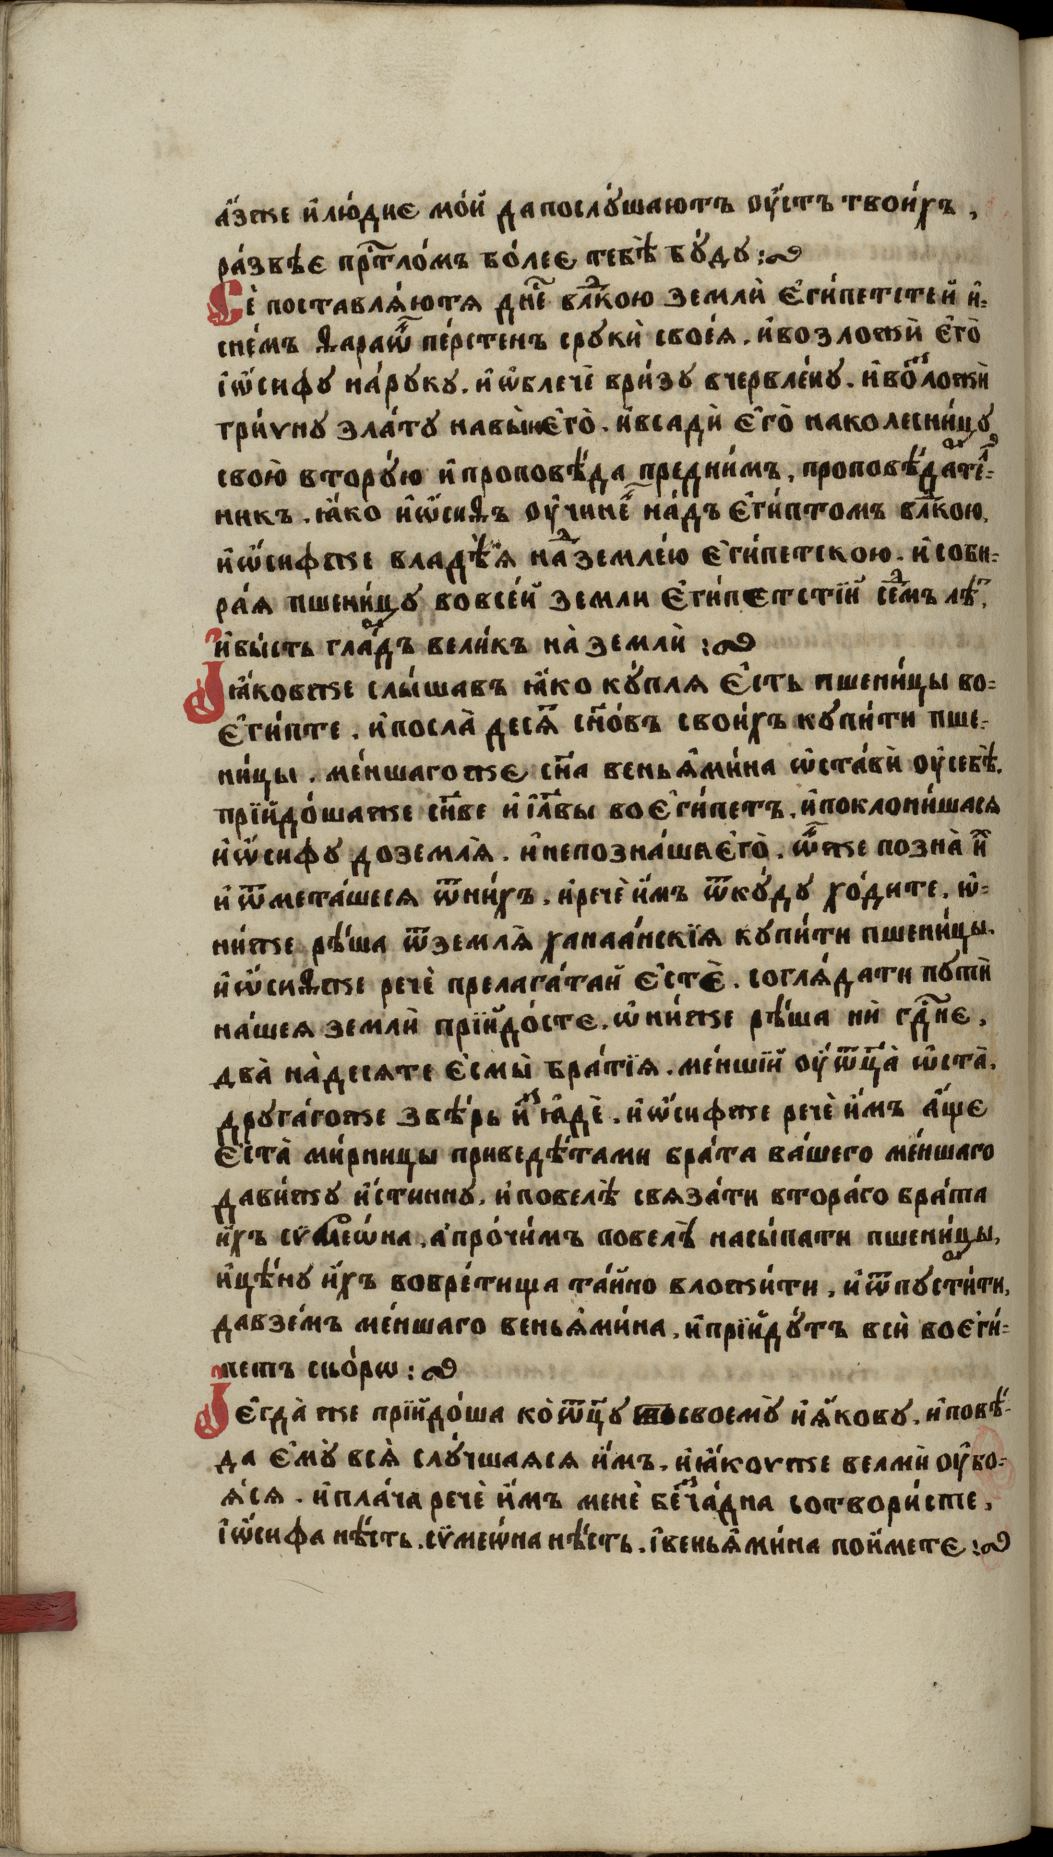 а҆́зже и҆лю́дие мо́й да послу́шаютъ оу҆́стъ твои́хъ,
ра́звѣе прⷭ҇тло́мъ бо́лее тебѣ̀ бу́ду :
Сѐ поставля́ютя дн҃е влⷣкою земли̂ є҆ги́петстей и҆-
сне́мъ фараѡ҆́ пе́рстень сруки̂ своея̀. и҆возложи̂ є҆го̀
і҆ѡ́сифу на́руку. и҆ ѡ҆блече̂ ври́зу вчервле́ну. и҆во́зложи̂
гри́вну зла́ту навы́ю є҆го̀. и҆всади̂ є҆го̀ наколесни́цу
свою̀ втору́ю и҆проповѣ́да предни́мъ, проповѣ́дате-
никъ. ꙗ҆́ко и҆ѡ҆́сифъ оу҆чине́ на́дъ є҆ги́птомъ влⷣкою,
и҆ѡ҆́сифже владѣ́я надземле́ю є҆ги́петскою. и҆соби-
ра́я пшени́цу вовсе́й земли є҆ги́петстїй се́дмъ лѣ́т,
и҆бы́сть гла́дъ вели́къ на̀ земли̂ :
І҆ꙗ́ковже слы́шавъ ꙗ҆́ко ку́пля є҆́сть пшени́цы во-
є҆ги́пте. и҆посла̀ деся́т сн҃о́въ свои́хъ купи́ти пше-
ни́цы. ме́ншагоже сн҃а веньꙗми́на ѡ҆ста́ви̂ оу҆себѣ̀.
прїидо́шаже сн҃ве и҆ і҆и҃лвы во є҆ги́петъ. и҆поклони́шася
и҆ѡ҆́сифу доземля̀. и҆непозна́ша є҆го̀. ѡ҆́нже позна̀ и҆х
и҆ ѿмета́шеся ѿни́хъ. и҆рече̂ и҆́мъ ѿку́ду хо́дите. ѡ҆-
ни́же рѣ́ша ѿземля̀ ханаа́нскїя купи́ти пшени́цы.
и҆ѡ҆́сифже рече̂ прелага́таи є҆сте̂. согля́дати пути̂
на́шея земли̂ прїидо́сте. ѡ҆ни́же рѣ́ша ни̂ гдⷭ҇не,
два̀ на́десяте є҆смы̀ бра́тїя. ме́ншїй оу҆ ѿц҃а̀ ѡ҆ста̀.
друга́гоже звѣ́рь и҆з ꙗ҆де̂. и҆ѡ҆́сифже рече̂ и҆́мъ а҆́ще
є҆ста̀ ми́рницы приведѣ́тами бра́та ва́шего ме́ншаго
дави́жу и҆́стинну. и҆повелѣ̀ связа́ти втора́го бра́та
и҆́хъ сѵмеѡ́на. а҆про́чимъ повелѣ̀ насы́пати пшени́цы,
и҆цѣ́ну и҆́хъ вовре́тища та́йно вложи́ти. и҆ ѿпусти́ти,
давзе́мъ ме́ншаго веньꙗми́на. и҆прїиду́тъ вси̂ во є҆ги́-
петъ ско́рѡ :
І҆ є҆гда̀ же прїидо́ша ко̀ ѿц҃у своему̀ и҆ꙗ́кову. и҆повѣ́-
да є҆му̀ вся̀ слу́чшаяся и҆́мъ. и҆ꙗ́ковже велми̂ оу҆бо-
я́ся. и҆пла́ча рече̂ и҆́мъ мене̂ беⷥча́дна сотвори́сте,
і҆ѡ҆́сифа нѣ́сть. сѵмеѡ́на нѣ́сть. і҆веньꙗми́на пои́мете :